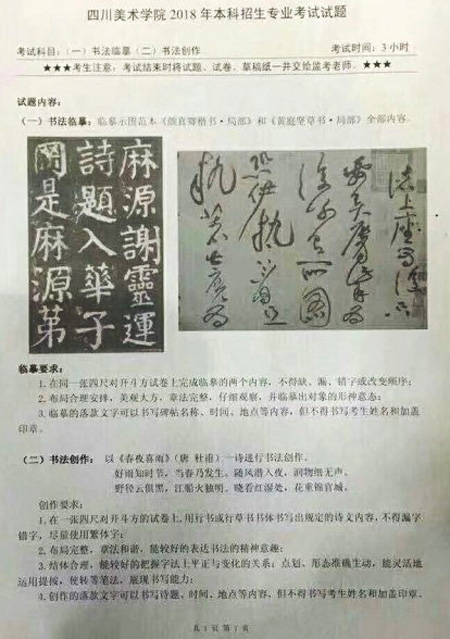 四川美术学院 2018 年本科招生专业考试试题
考试科目：（一）书法临摹（二）书法创作
考试时间：3 小时
★★★考生注意：考试结束时将试题、试卷、草稿纸一并交给监考老师。★★★
试题内容：
（一）书法临摹：临摹示图范本《颜真卿楷书·局部》和《黄庭坚草书·局部》全部内容。
麻源謝靈運
詩題入華子
岡是麻源第
諸上座為復只
要弄唇觜為
復別有所圖
恐伊執著且
執著甚麼為
临摹要求：
1.在同一张四尺对开斗方试卷上完成临摹的两个内容，不得缺、漏、错字或改变顺序；
2.布局合理安排，美观大方，章法完整，仔细观察，并临摹出对象的形神意态；
3.临摹的落款文字可以书写碑帖名称、时间、地点等内容，但不得书写考生姓名和加盖
印章。
（二）书法创作：以《春夜喜雨》（唐 杜甫）一诗进行书法创作。
好雨知时节，当春乃发生。随风潜入夜，润物细无声。
野径云俱黑，江船火独明。晓看红湿处，花重锦官城。
创作要求：
1.在一张四尺对开斗方的试卷上，用行书或行草书书体书写出规定的诗文内容，不得漏字
错字，尽量使用繁体字；
2.布局完整，章法和谐，能较好的表达书法的精神意趣；
3.结体合理，能较好的把握字法上平正与变化的关系；点划、形态准确生动，能灵活地
运用提按，使转等笔法，展现书写能力；
4.创作的落款文字可以书写诗题，时间、地点等内容，但不得书写考生姓名和加盖印章。
共 1 页 第 1 页